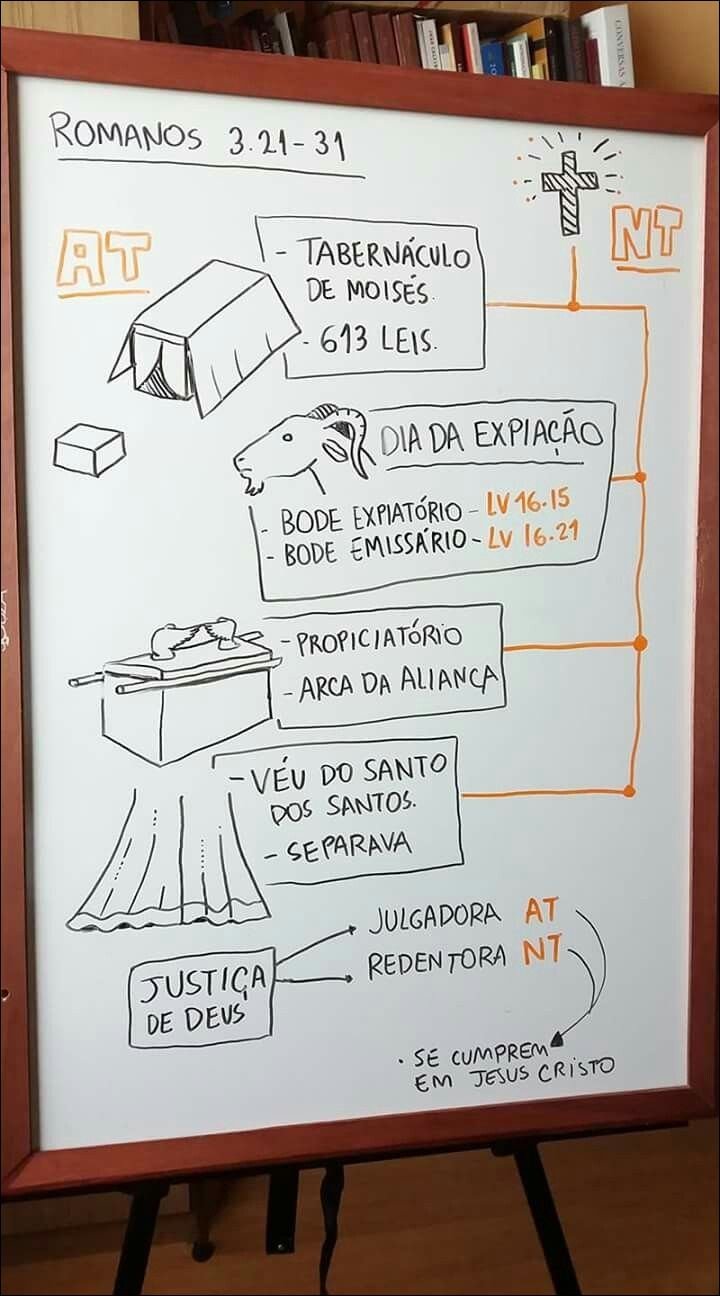 CONVERSAS A
ROMANOS 3.21-31
AT
NT
- TABERNÁCULO
DE MOISÉS.
- 613 LEIS.
DIA DA EXPIAÇÃO
- BODE EXPIATÓRIO - LV 16.15
- BODE EMISSÁRIO - LV 16.21
- PROPICIATÓRIO
- ARCA DA ALIANÇA
- VÉU DO SANTO
DOS SANTOS.
- SEPARAVA
JULGADORA AT
REDENTORA NT
JUSTIÇA
DE DEUS
• SE CUMPREM
EM JESUS CRISTO